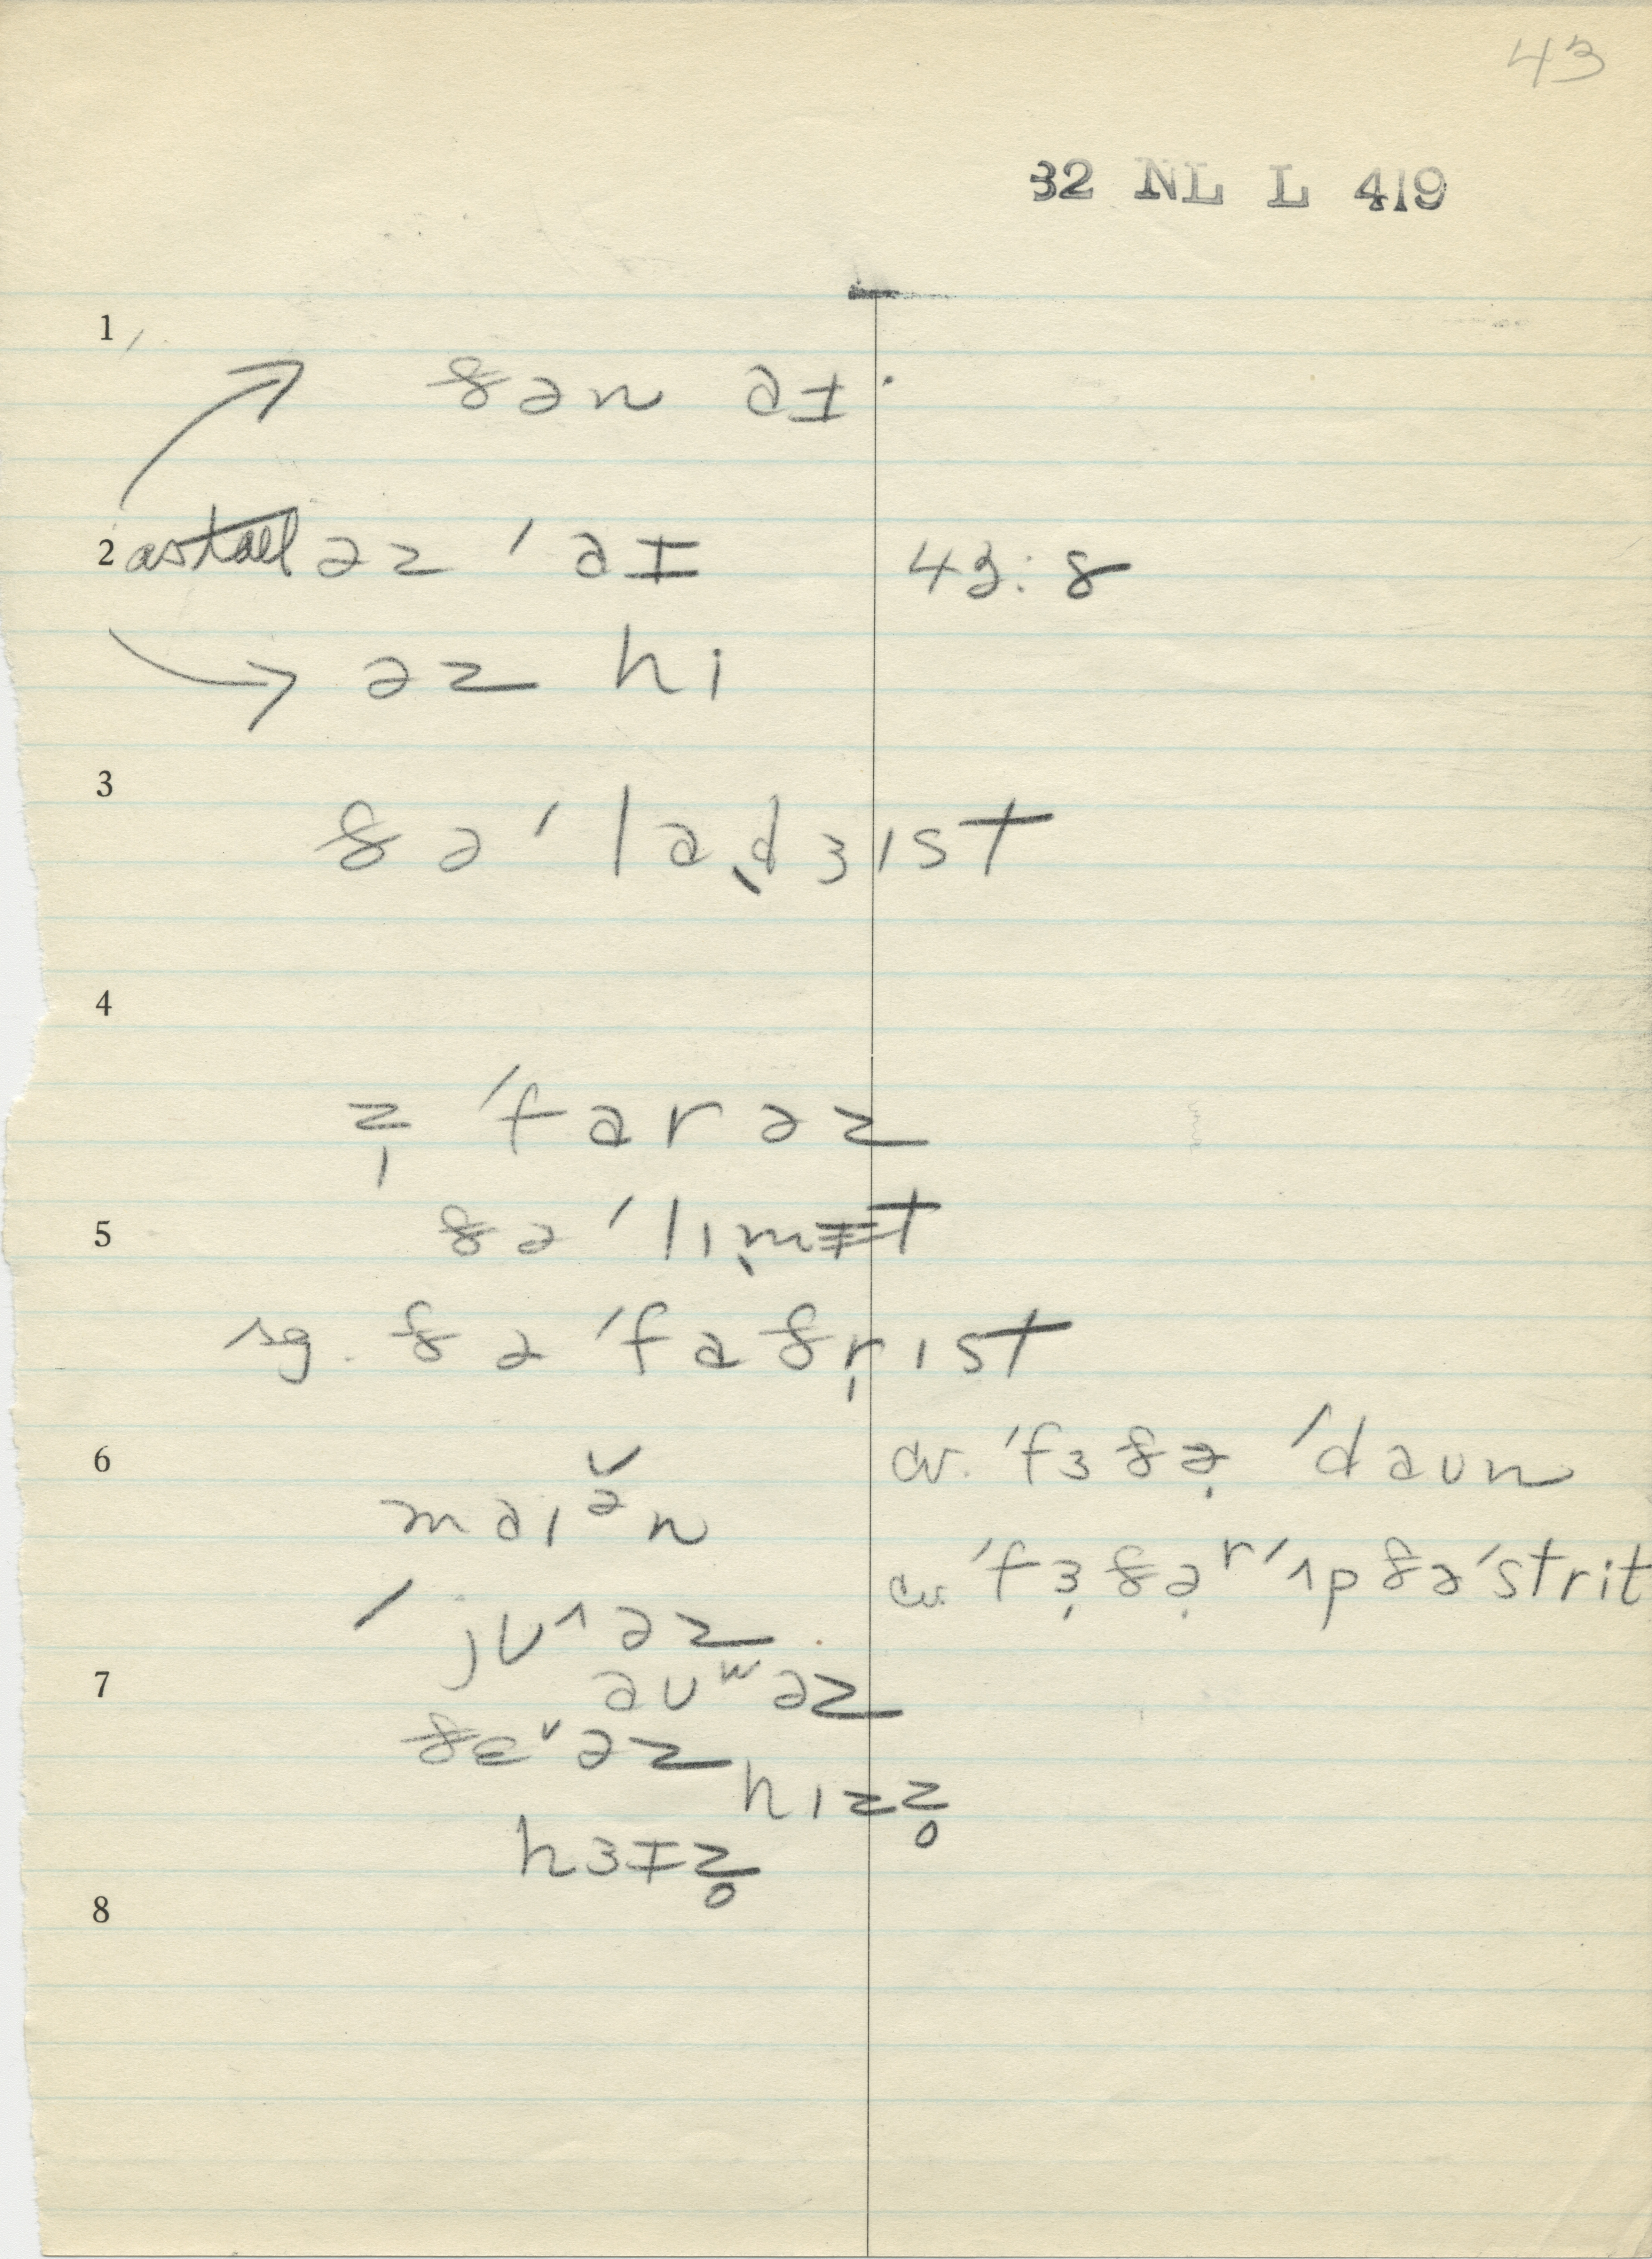 43
32 NL L 419
1
ðən aɪ
2 as tall əz ˈaɪ 43:8
əz hi
3
ðə ˈladʒɪst
4
z̩ ˈfarəz
5 ðə ˈlɪmɪt
sg. ðə ˈfaðrɪst
6 cv. ˈfɜðə ˈdaʊn
maɪə̆n
cv. ˈfɜðəʳ ˈʌp ðə ˈstrit
ˈjʊ^əz
7 aʊʷəz
ðɛ˅əz
hɪzz̥
hɜɪz̥
8